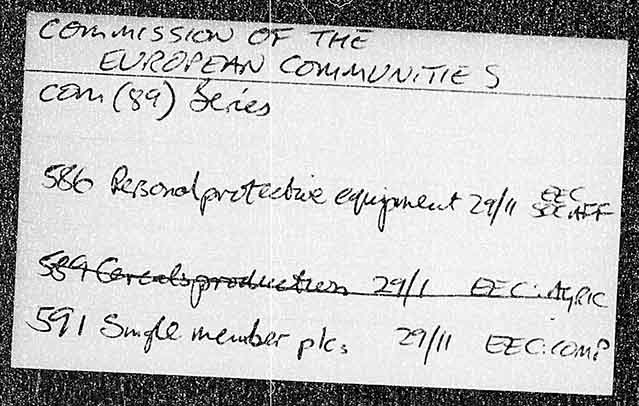 COMMISSION OF THE
EUROPEAN COMMUNITIES
com (89) Series
586 Personal protective equipment 29/11 EEC SOC.AFF
589 Cereals production 29/1 EEC: AGRIC
591 Single member plcs 29/11 EEC: COMP